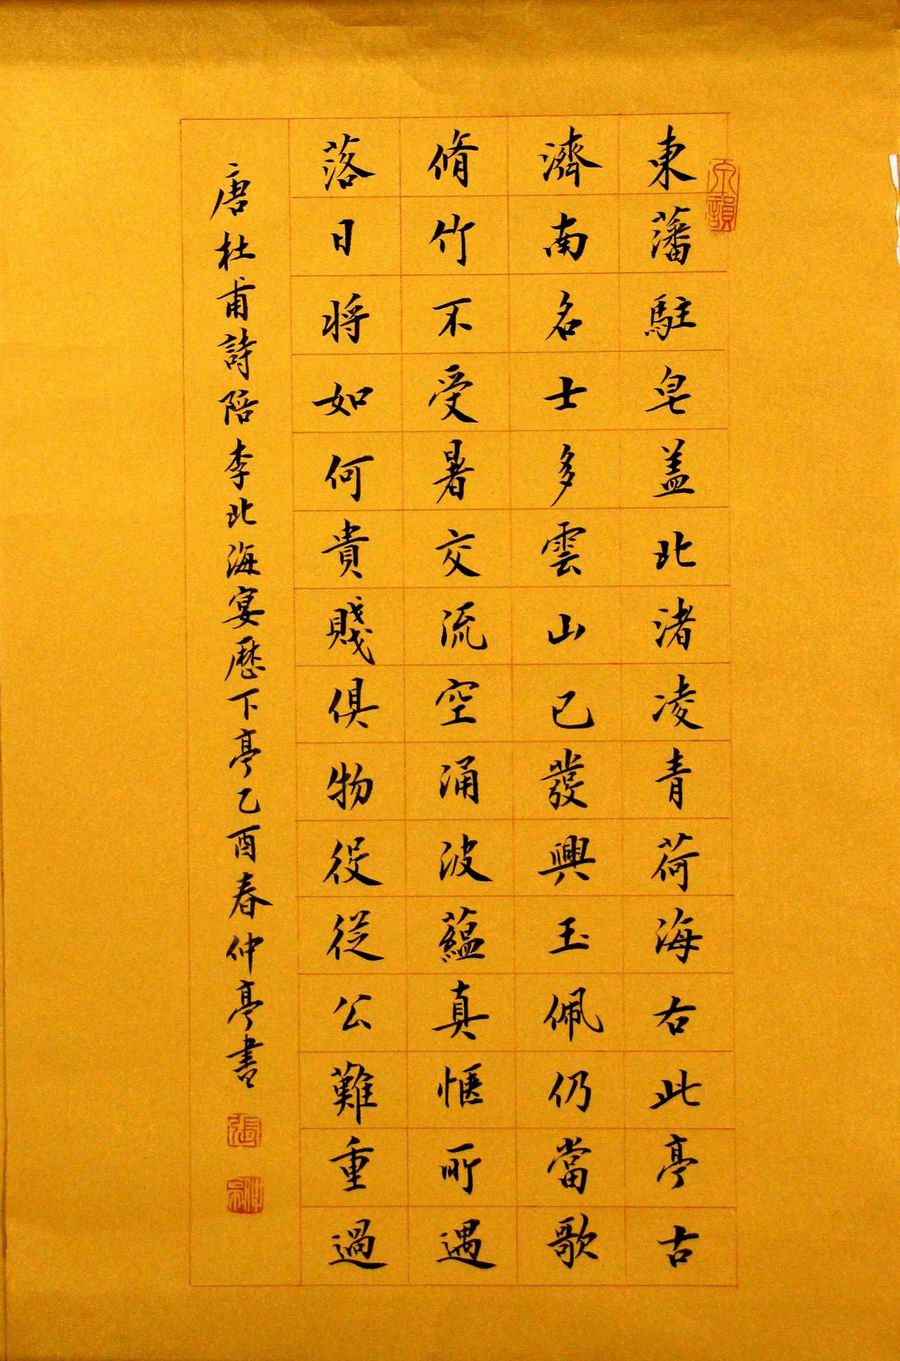 東藩駐皂盖北渚凌青荷海右此亭古
濟南名士多雲山已發興玉佩仍當歌
脩竹不受暑交流空涌波蘊真愜所遇
落日将如何貴賤俱物役従公難重過
唐杜甫詩陪李北海宴歷下亭乙酉春仲亭書
張